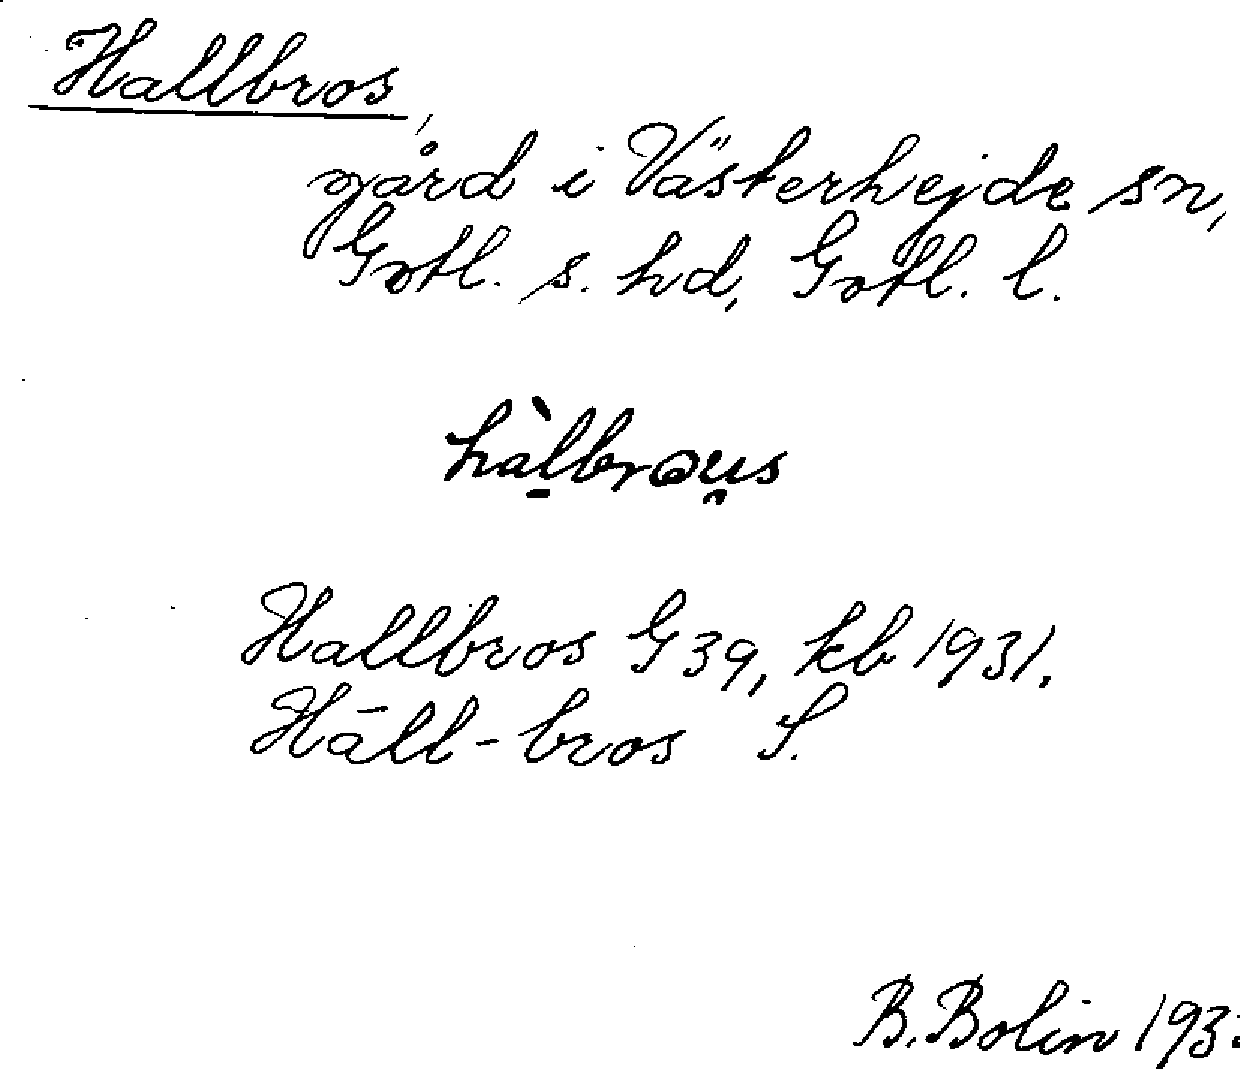 Hallbros,
gård i Västerhejde sn,
Gotl. s. hd, Gotl. l.
hàlbrɷu̯s
Hallbros G 39, kb 1931.
Hāll-bros S.
B. Bolin 193